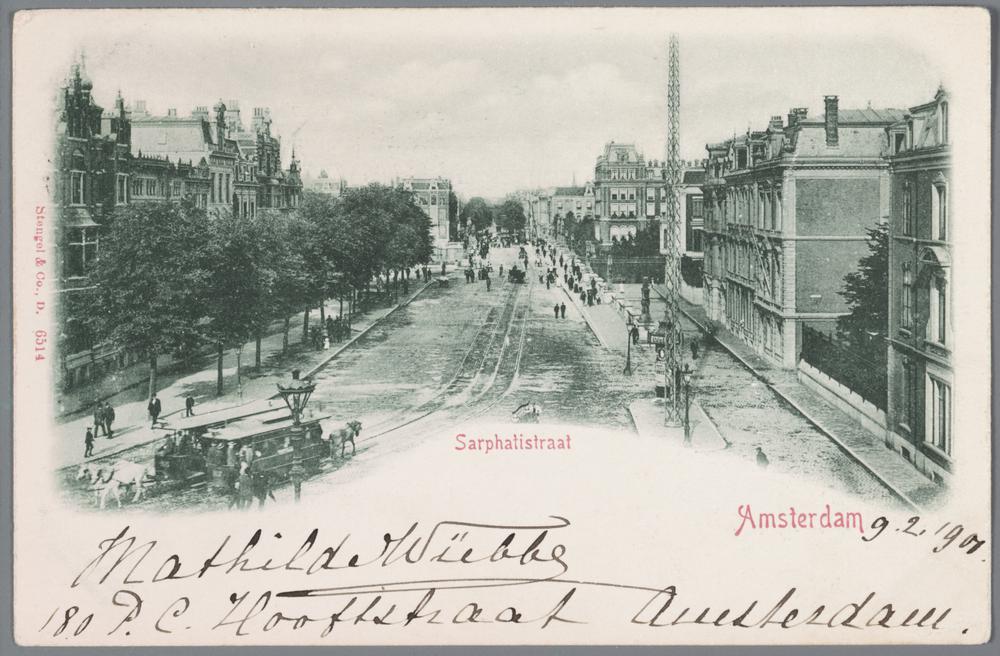 Stengel & Co., D. 6514
Sarphatistraat
Amsterdam 9.2.1901.
Mathilde Wübbe
180 P. C. Hooftstraat Amsterdam.